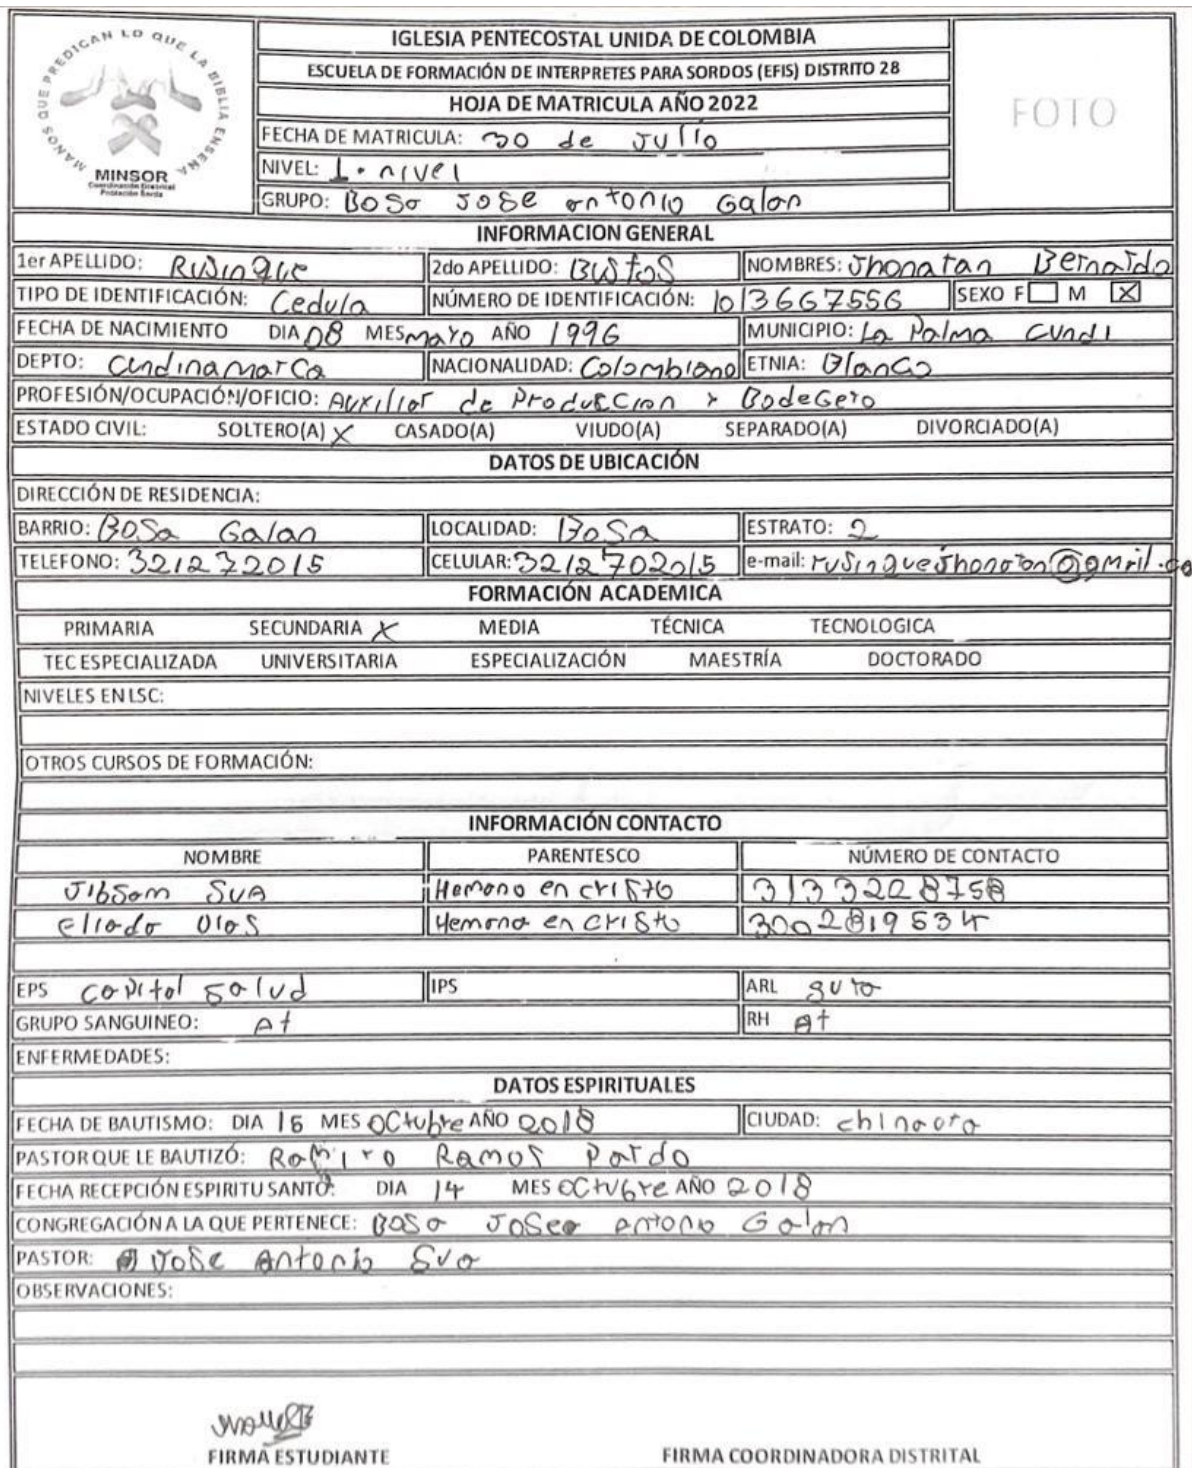 MANOS QUE PREDICAN LO QUE LA BIBLIA ENSEÑA
MINSOR
Coordinación Distrital
Población Sorda
IGLESIA PENTECOSTAL UNIDA DE COLOMBIA
ESCUELA DE FORMACIÓN DE INTERPRETES PARA SORDOS (EFIS) DISTRITO 28
HOJA DE MATRICULA AÑO 2022
FOTO
FECHA DE MATRICULA: 30 de Julio
NIVEL: 1. nivel
GRUPO: Bosa Jose antonio Galan
INFORMACION GENERAL
1er APELLIDO: Rusinque 2do APELLIDO: Bustos NOMBRES: Jhonatan Bernardo
TIPO DE IDENTIFICACIÓN: Cedula NÚMERO DE IDENTIFICACIÓN: 1013667556 SEXO F M X
FECHA DE NACIMIENTO DIA 08 MES mayo AÑO 1996 MUNICIPIO: La Palma Cundi
DEPTO: Cundinamarca NACIONALIDAD: Colombiano ETNIA: Blanco
PROFESIÓN/OCUPACIÓN/OFICIO: Auxiliar de Produccion y Bodegero
ESTADO CIVIL: SOLTERO(A) X CASADO(A) VIUDO(A) SEPARADO(A) DIVORCIADO(A)
DATOS DE UBICACIÓN
DIRECCIÓN DE RESIDENCIA:
BARRIO: Bosa Galan LOCALIDAD: Bosa ESTRATO: 2
TELEFONO: 321272015 CELULAR: 3212702015 e-mail: rusinquejhonatan@gmail.co
FORMACIÓN ACADEMICA
PRIMARIA SECUNDARIA X MEDIA TÉCNICA TECNOLOGICA
TEC ESPECIALIZADA UNIVERSITARIA ESPECIALIZACIÓN MAESTRÍA DOCTORADO
NIVELES EN LSC:
OTROS CURSOS DE FORMACIÓN:
INFORMACIÓN CONTACTO
NOMBRE PARENTESCO NÚMERO DE CONTACTO
Jibsam Sua Hemano en cristo 3133228758
Eliada Dias Hemana en cristo 3002819534
EPS Capital salud IPS ARL sura
GRUPO SANGUINEO: A+ RH A+
ENFERMEDADES:
DATOS ESPIRITUALES
FECHA DE BAUTISMO: DIA 15 MES Octubre AÑO 2018 CIUDAD: chinaota
PASTOR QUE LE BAUTIZÓ: Ramiro Ramos Pardo
FECHA RECEPCIÓN ESPIRITU SANTO: DIA 14 MES Octubre AÑO 2018
CONGREGACIÓN A LA QUE PERTENECE: Bosa Josea Antonio Galan
PASTOR: Jose Antonio Sua
OBSERVACIONES:
FIRMA ESTUDIANTE FIRMA COORDINADORA DISTRITAL